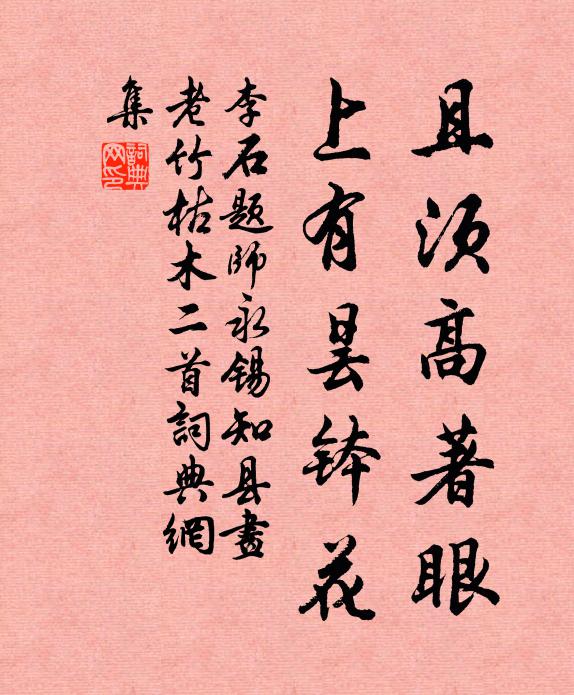 且须高著眼
上有昙钵花
李石题师永锡知县畫
老竹枯木二首詞典網
集
詞典網印